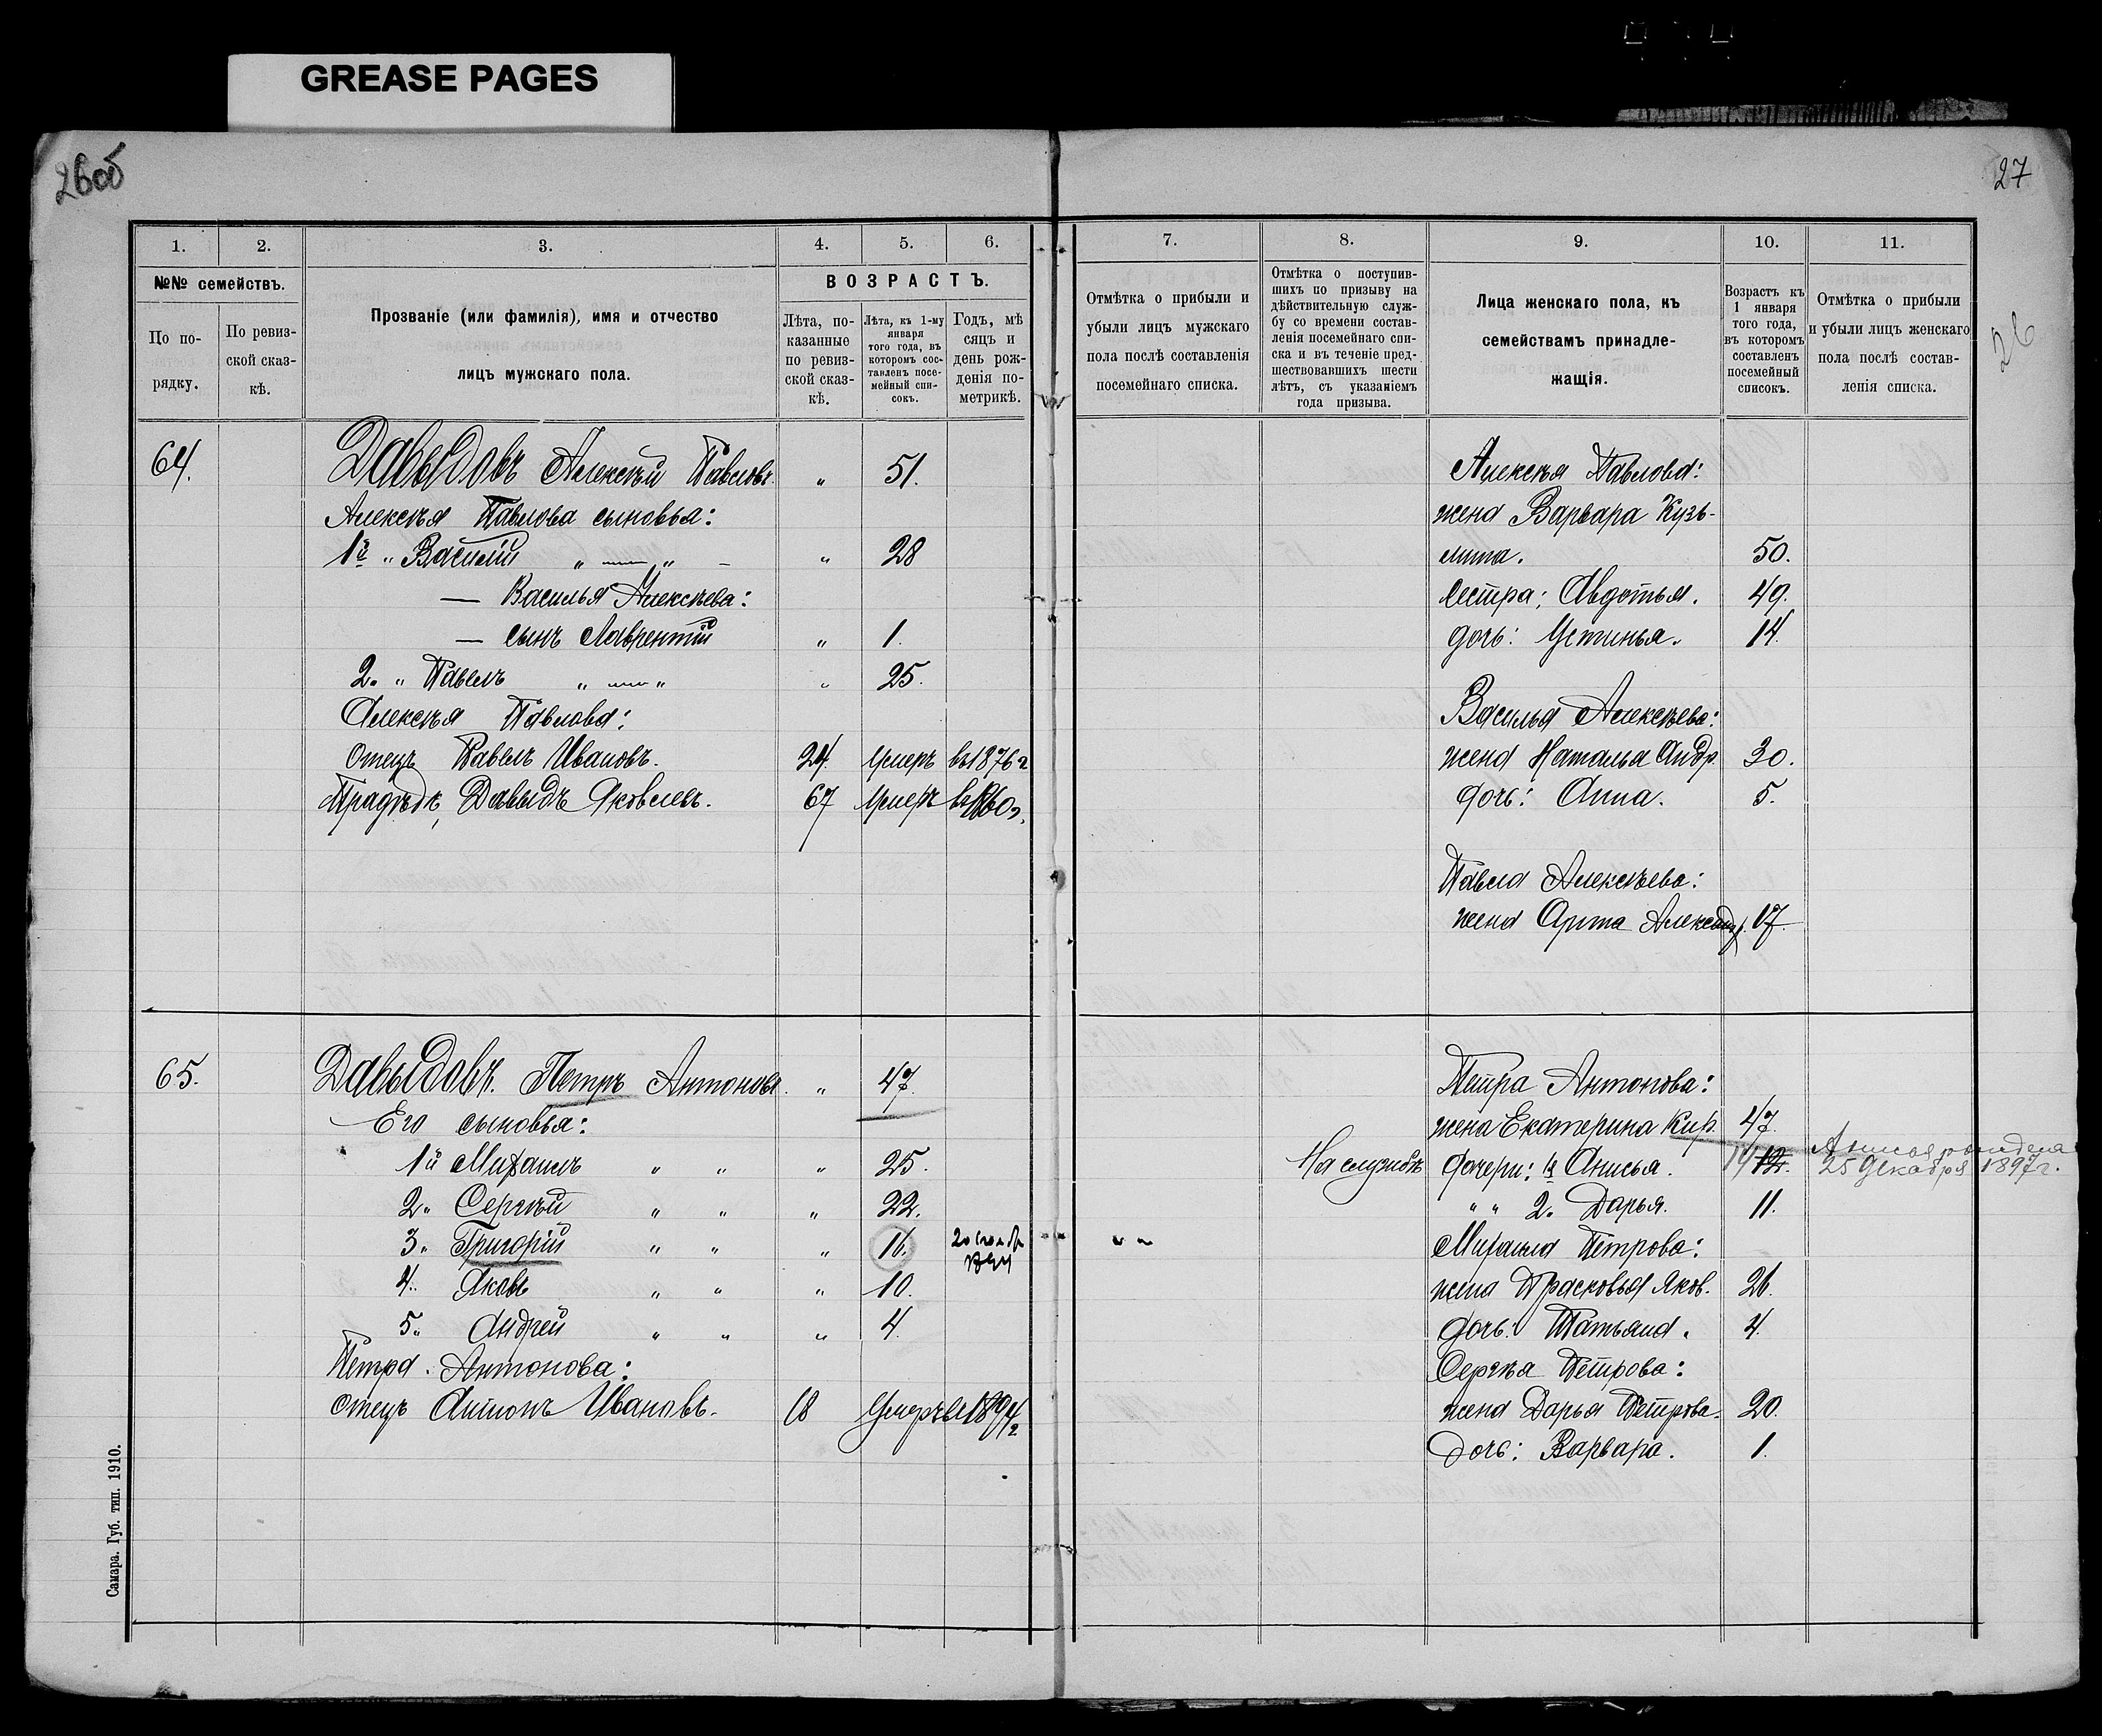 GREASE PAGES
26об
27
26
1.
2.
3.
4.
5.
6.
№№ семействъ.
ВОЗРАСТЪ.
По по-
рядку.
По ревиз-
ской сказ-
кѣ.
Прозваніе (или фамилія), имя и отчество
лицъ мужскаго пола.
Лѣта, по-
казанные
по ревиз-
ской сказ-
кѣ.
Лѣта, къ 1-му
января
того года, въ
которомъ сос-
тавленъ посе-
мейный спи-
сокъ.
Годъ, мѣ
сяцъ и
день рож-
денія по-
метрикѣ.
64. Давыдовъ Алексѣй Павловъ. " 51.
Алексѣя Павлова сыновья:
1й " Василій " — " " 28
— Василья Алексѣева:
— сынъ Лаврентій " 1.
2. " Павелъ " — " " 25.
Алексѣя Павлова:
Отецъ Павелъ Ивановъ. 24 Умеръ въ 1876 г
Прадѣдъ, Давыдъ Яковлевъ. 67 Умеръ въ 1860 г.
65. Давыдовъ. Петръ Антоновъ. " 47.
Его сыновья:
1й Михаилъ " " " 25.
2. Сергѣй " " " 22.
3. Григорій " " " 16. 20
4. Яковъ " " " 10.
5. Андрей " " " 4.
Петра Антонова:
Отецъ Антонъ Ивановъ. 18 Умеръ въ
Самара. Губ. тип. 1910.
7.
8.
9.
10.
11.
Отмѣтка о прибыли и
убыли лицъ мужскаго
пола послѣ составленія
посемейнаго списка.
Отмѣтка о поступив-
шихъ по призыву на
дѣйствительную служ-
бу со времени состав-
ленія посемейнаго спи-
ска и въ теченіе пред-
шествовавшихъ шести
лѣтъ, съ указаніемъ
года призыва.
Лица женскаго пола, къ
семействамъ принадле-
жащія.
Возрастъ къ
1 января
того года,
въ которомъ
составленъ
посемейный
списокъ.
Отмѣтка о прибыли
и убыли лицъ женскаго
пола послѣ состав-
ленія списка.
Алексѣя Павлова:
жена Варвара Кузь-
мина. 50.
Сестра: Авдотья. 49.
дочь: Устинья. 14.
Василья Алексѣева:
жена Наталья Андр. 30.
дочь: Анна. 5.
Павла Алексѣева:
жена Александр. 17.
Петра Антонова:
жена Екатерина Кир. 47.
На службѣ дочери: 1я Анисья. 14 12. Анисья рождена
25 декабря 1897 г.
" " 2. Дарья. 11.
Михаила Петрова:
жена Прасковья Яков. 26.
дочь: Татьяна. 4.
Сергѣя Петрова:
жена Дарья Петрова. 20.
дочь: Варвара. 1.